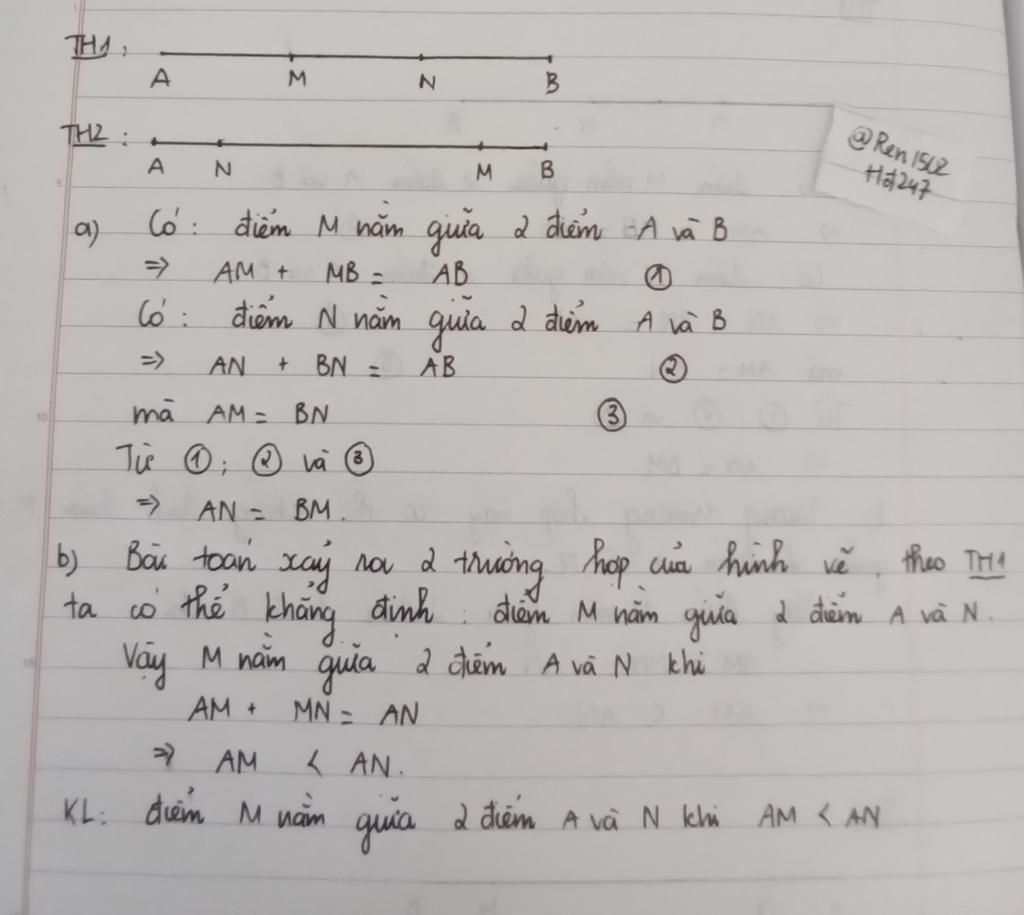 TH1:
A M N B
TH2:
A N M B
@Ren1502
Hd247
a) Có: điểm M nằm giữa 2 điểm A và B
=> AM + MB = AB ①
Có: điểm N nằm giữa 2 điểm A và B
=> AN + BN = AB ②
mà AM = BN ③
Từ ①; ② và ③
=> AN = BM.
b) Bài toán xảy ra 2 trường hợp của hình vẽ, theo TH1
ta có thể khẳng định: điểm M nằm giữa 2 điểm A và N.
Vậy M nằm giữa 2 điểm A và N khi
AM + MN = AN
=> AM < AN.
KL: điểm M nằm giữa 2 điểm A và N khi AM < AN